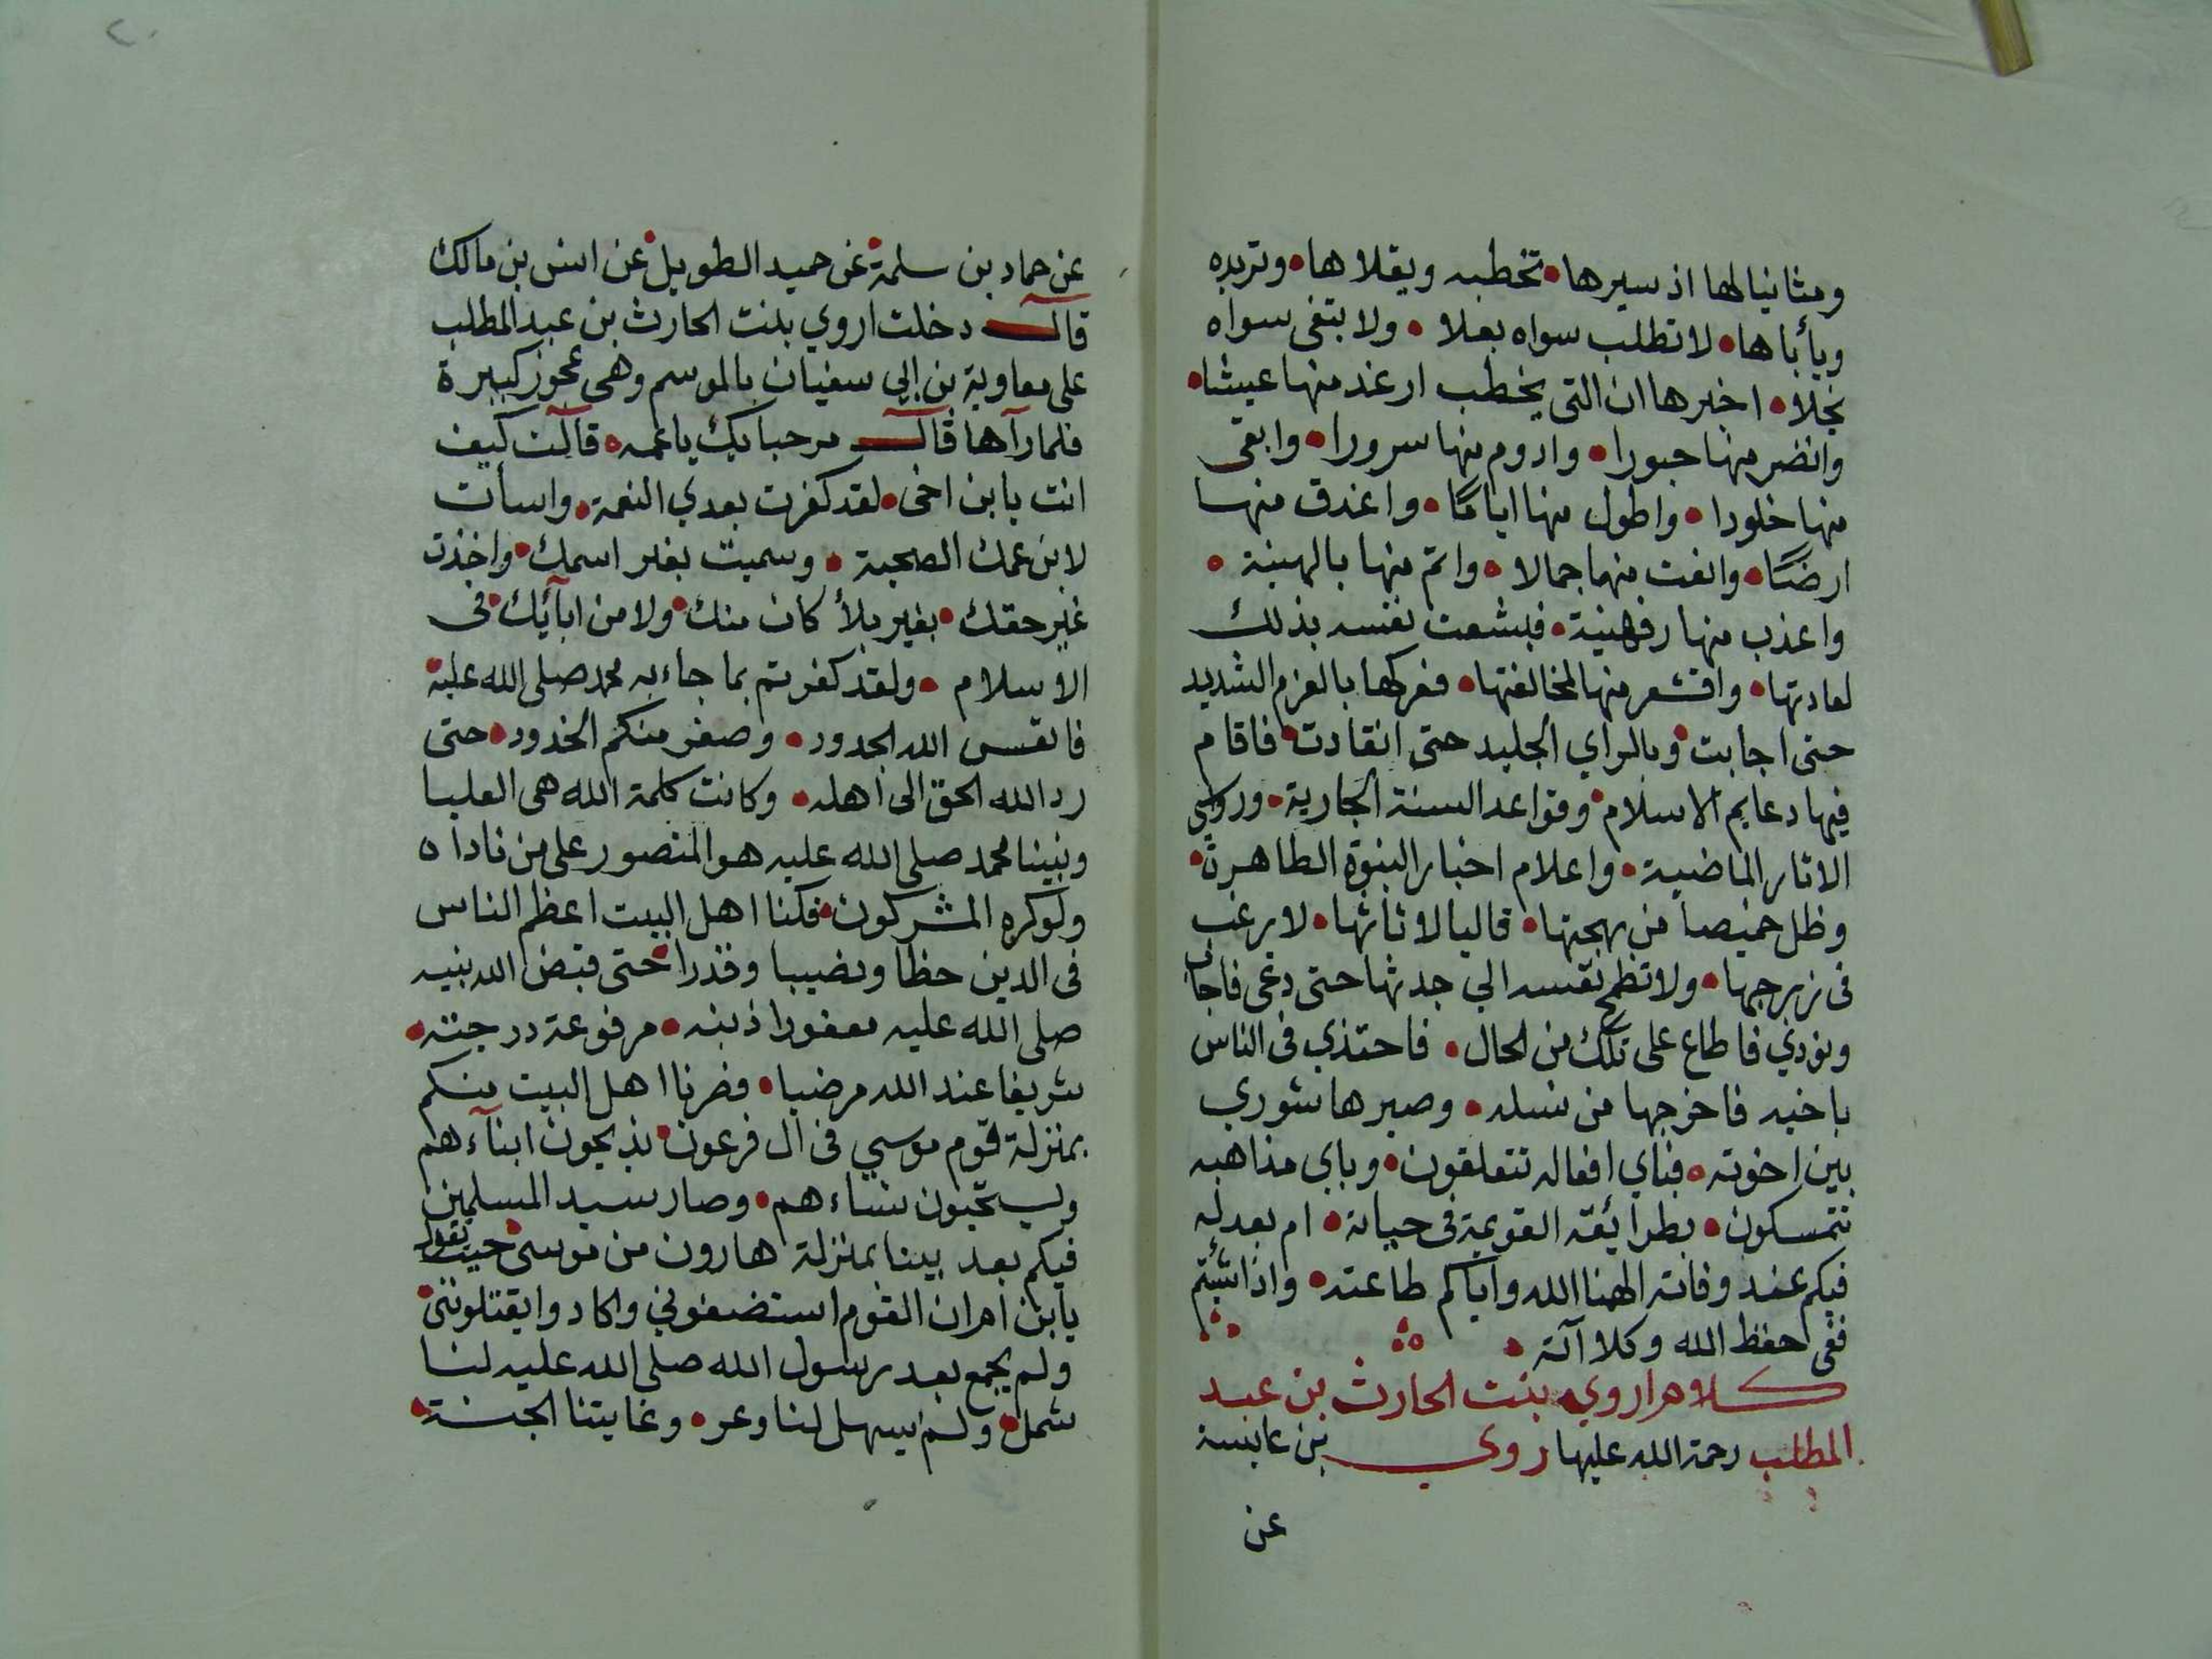 ومثانيا لها اذ سيرها تخطبه ويقلاها وتريده
ويأباها لا تطلب سواه بعلا ولا بتغى سواه
نجلا اخبرها ان التى يخطب ارغد منها عيشا
وانضر منها حبورا وادوم منها سرورا وابقى
منها خلودا واطول منها اياما واغدق منها
ارضا وانفت منها جمالا واتم منها بالهينة
واعذب منها رفهنية فبشعت نفسه بذلك
لعادتها واقشعر منها لمخالفتها فعركها بالعزم الشديد
حتى اجابت وبالراي الجليد حتى انقادت فاقام
فيها دعايم الاسلام وقواعد السنة الجارية ورواسى
الاثار الماضية واعلام اخبار النبوة الطاهرة
وظل خميصا من بهجتها قاليا لاثاثها لا يرغب
فى زبرجها ولا تطمح نفسه الي جدتها حتى دعى فاجاب
ونودي فاطاع على تلك من الحال فاحتذي فى الناس
باخيه فاخرجها من نسله وصيرها شوري
بين اخوته فباي افعاله تتعلقون وباي مذاهبه
تتمسكون بطرائقه القويمة فى حياته ام بعدله
فيكم عند وفاته الهمنا الله واياكم طاعته واذا شئتم
ففى حفظ الله وكلاآته
كلام اروي بنت الحارث بن عبد
المطلب رحمة الله عليها روي بن عايشة
عن
عن حماد بن سلمة عن حميد الطويل عن انس بن مالك
قال دخلت اروي بنت الحارث بن عبد المطلب
على معاوية بن ابي سفيان بالموسم وهى عجوز كبيرة
فلما رآها قال مرحبا بك يا عمه قالت كيف
انت يا بن اخى لقد كفرت بعدي النعمة واسأت
لابن عمك الصحبة وسميت بغير اسمك واخذت
غير حقك بغير بلأ كان منك ولا من ابآئك فى
الاسلام ولقد كفرتم بما جاء به محمد صلى الله عليه
فاتعس الله الجدود وصغر منكم الخدود حتى
رد الله الحق الى اهله وكانت كلمة الله هى العليا
ونبينا محمد صلى الله عليه هو المنصور على من ناداه
ولو كره المشركون فكنا اهل البيت اعظم الناس
فى الدين حظا ونصيبا وقدرا حتى قبض الله نبيه
صلى الله عليه مغفورا ذنبه مرفوعة درجته
شريفا عند الله مرضيا فصرنا اهل البيت منكم
بمنزلة قوم موسي فى ال فرعون يذبحون ابنآءهم
ويستحيون نساءهم وصار سيد المسلمين
فيكم بعد بينا بمنزلة هارون من موسى حيث يقول
يابن ام ان القوم استضعفوني وكادوا يقتلوننى
ولم يجمع بعد رسول الله صلى الله عليه لنا
شمل ولم يسهل لنا وعر وغايتنا الجنة